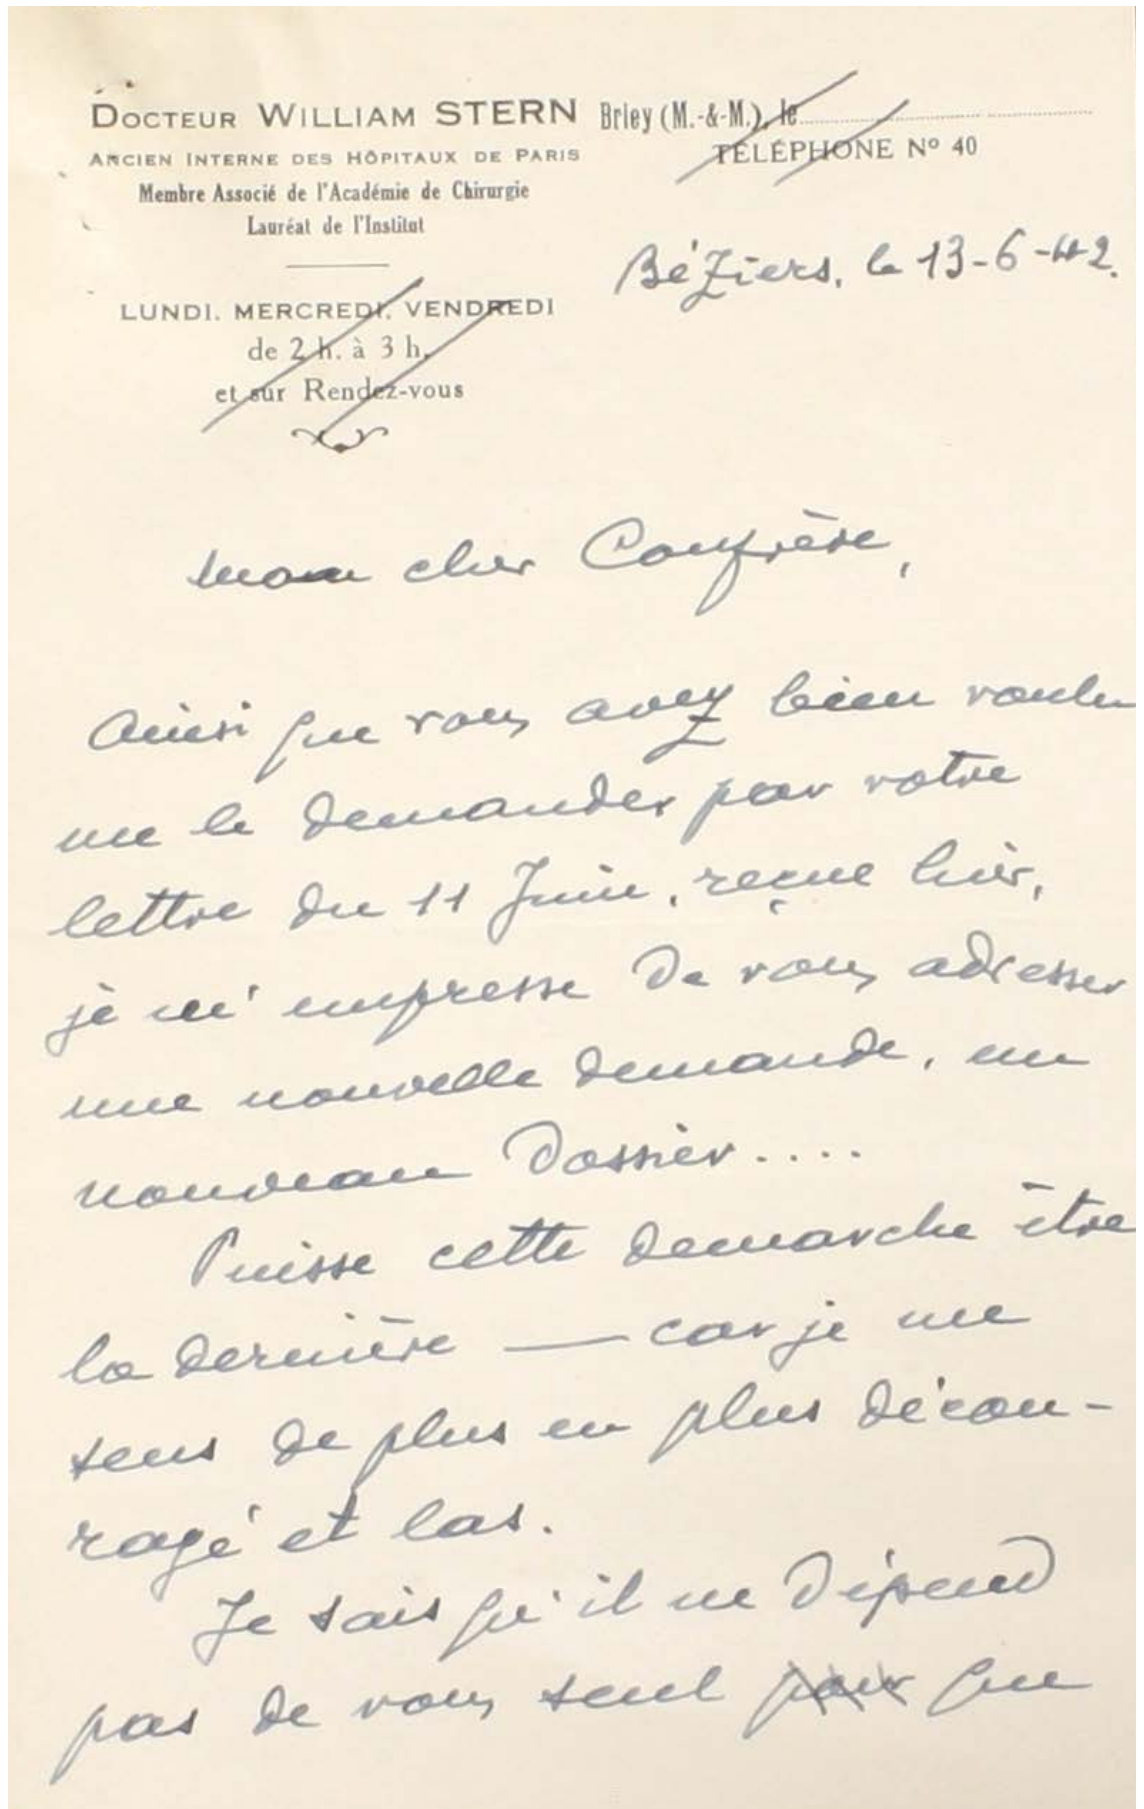 DOCTEUR WILLIAM STERN
ANCIEN INTERNE DES HÔPITAUX DE PARIS
Membre Associé de l'Académie de Chirurgie
Lauréat de l'Institut
LUNDI, MERCREDI, VENDREDI
de 2 h. à 3 h.
et sur Rendez-vous
Briey (M.-&-M.), le
TÉLÉPHONE Nº 40
Béziers, le 13-6-42.
Mon cher Confrère,
Ainsi que vous avez bien voulu
me le demander par votre
lettre du 11 Juin, reçue hier,
je m'empresse de vous adresser
une nouvelle demande, un
nouveau dossier....
Puisse cette demarche être
la dernière — car je me
sens de plus en plus décou-
ragé et las.
Je sais qu'il ne dépend
pas de vous seul pour que